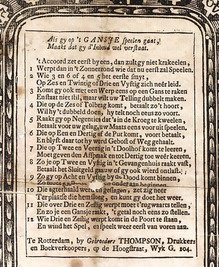 Als gy op 't GANSJE speelen gaat,
Maakt dat gy d'Inhoud wel verstaat.
't Accoord zet eerst byeen, dan zult gy niet krakeelen,
Werpt dan in 't Zonnetje wie dat nu eerst zal Speelen.
Wie 3 en 6 of 4 en 5 het eerste smyt,
Op Zes en Twintig of Drie en Vyftig zich neêr leid.
Komt gy ook met een Werp eens op een Gans te raken
Enstaat niet stil, maar wilt uw Telling dubbelt maken.
4 Die op de Zes of Tolbrug komt, betaalt zo't hoort,
Wil hy 't dubbeld doen, hy telt noch eens zo voort.
5 Raakt gy op Negentien dat 's in de Kroeg te kweelen
Betaalt voor uw gelag, uw Maats eens voor uit speelen.
6 Die op Een en Dertig of de Put komt, voort betaalt,
En blyft daar tot hy werd Gehost of Weg gehaald.
7 Die op Twee en Veertig in 't Doolhof komt te leeren
Moet geeven den Afspraak en tot Dertig toe wêer keeren.
8 Zo je op Twee en Vyftig in 't Gevangenhuis raakt vast,
Betaalt het Sluisgeld
9 Zo gy op Acht en Vyftig by de Dood
10 Die agterhaald werd
Ter plaatse die hem sloeg, en kunt gy doet het weer.
11 Die over Drie en Zestig werpt moet t'rug waarts tellen
En zo je een Gansje raakt, 't getal noch eens zo stellen.
12 Wie Drie en Zestig werpt komt in de Poort te staan,
En wind het Spel, en speelt weer eerst van vooren aan.
Te Rotterdam, by Gebroeders THOMPSON, Drukkers
en Boekverkoopers, op de Hoogstraat, Wyk G. 204.